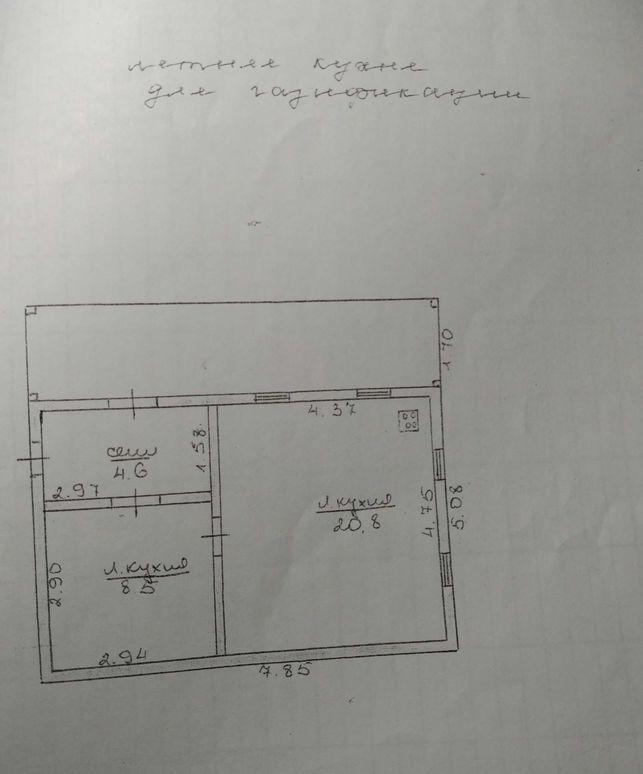 летняя кухня
для газификации
1.70
4.37
сени
4.6
1.58
2.97
л.кухня
20,8
4.75
5.08
л.кухня
8.5
2.90
2.94
7.85